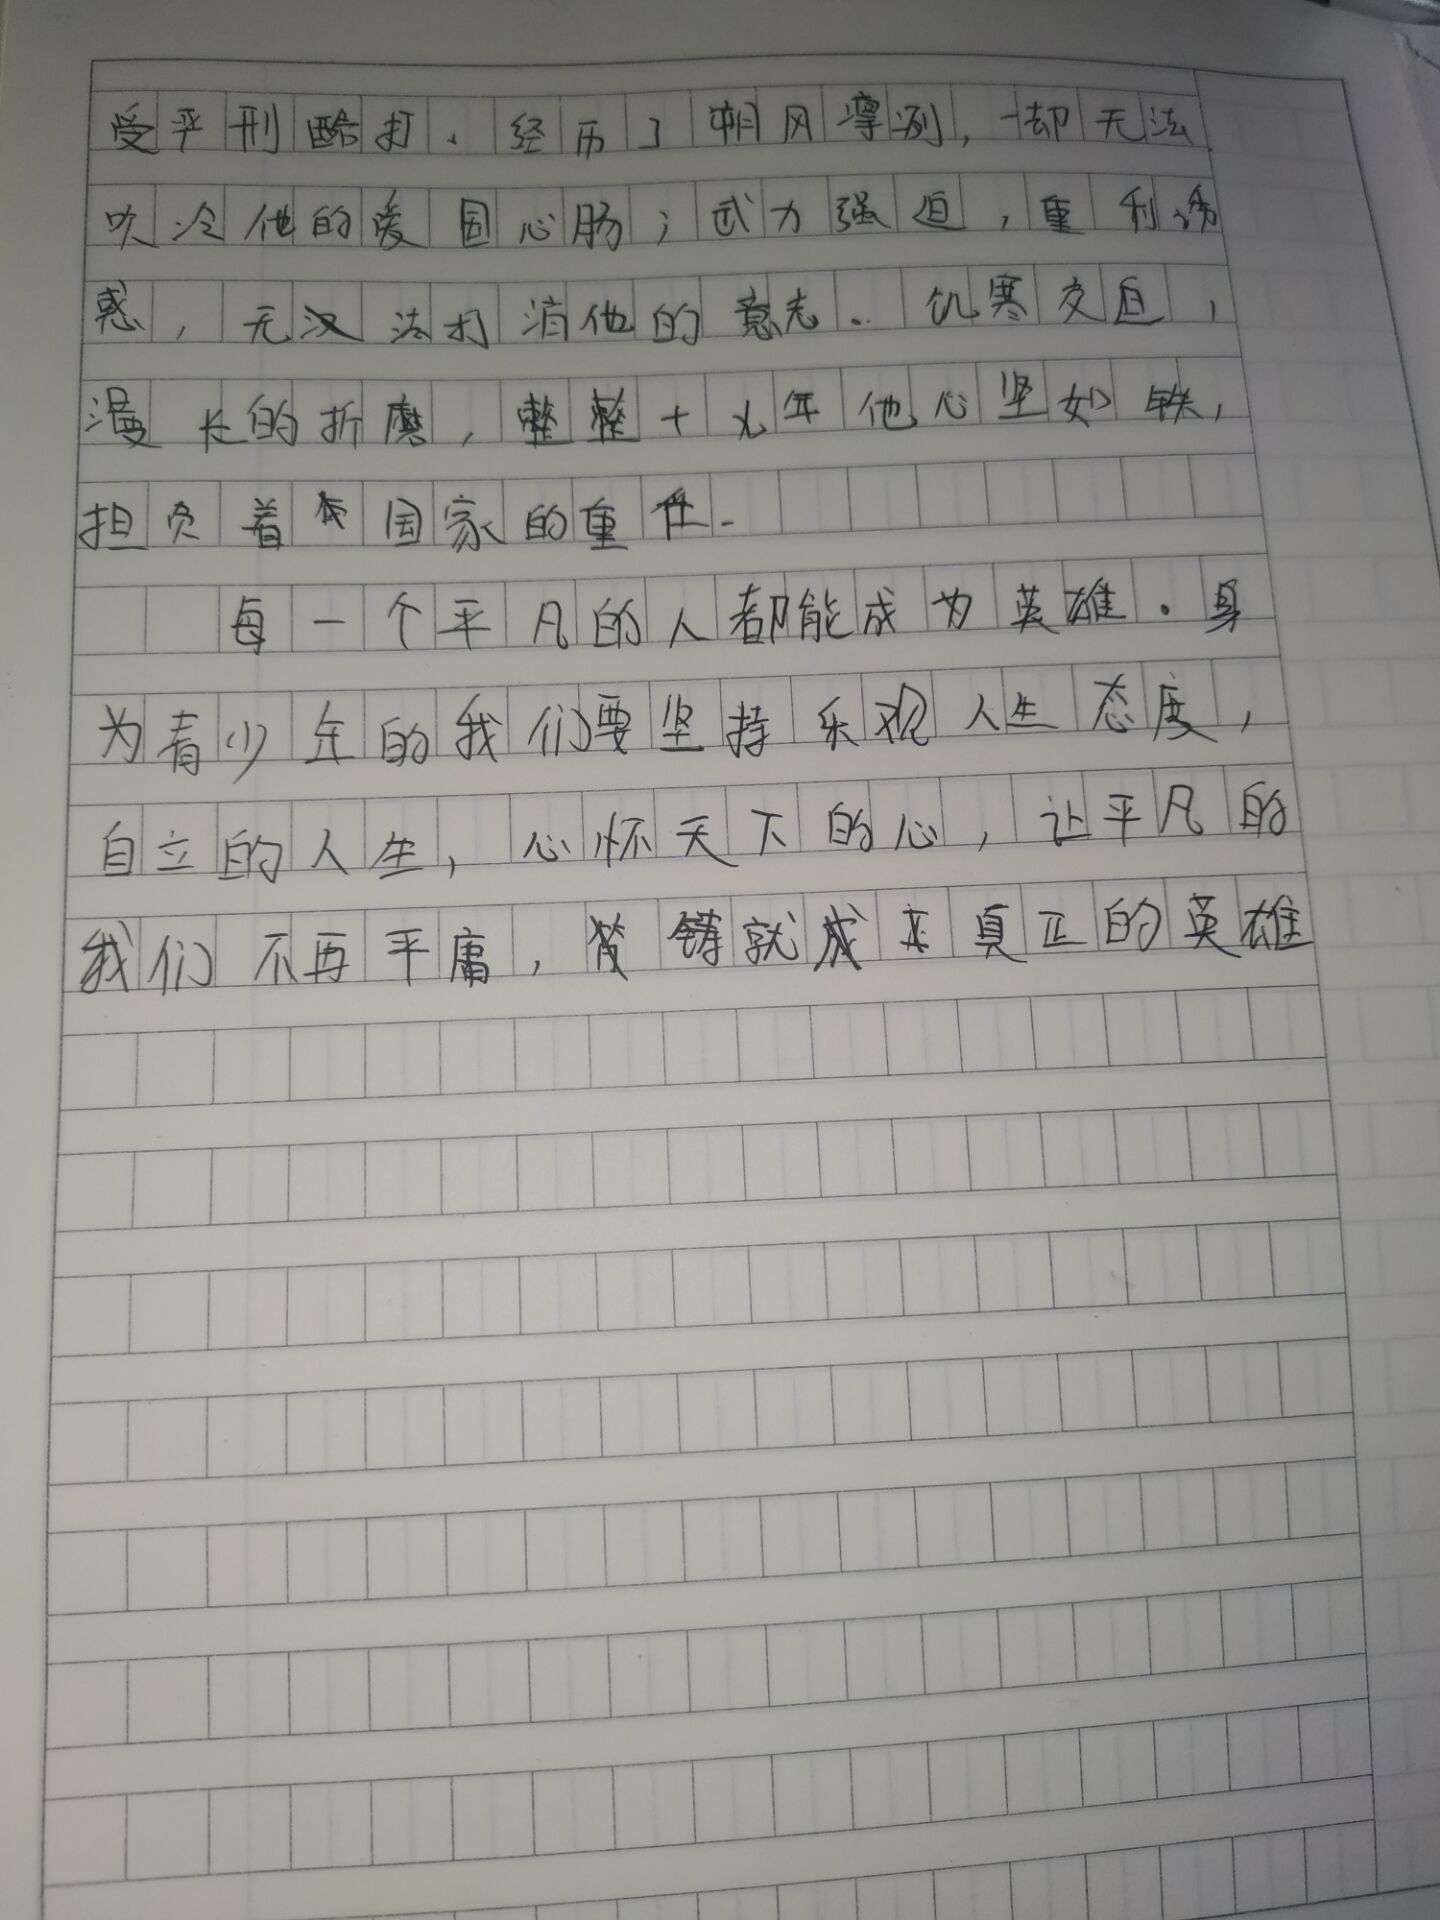 受严刑酷打、经历了朔风凛冽，却无法
吹冷他的爱国心肠；武力强迫，重利诱
惑，无法打消他的意志．饥寒交迫，
漫长的折磨，整整十九年他心坚如铁，
担负着国家的重任．
每一个平凡的人都能成为英雄．身
为青少年的我们要坚持乐观人生态度，
自立的人生，心怀天下的心，让平凡的
我们不再平庸，铸就成真正的英雄